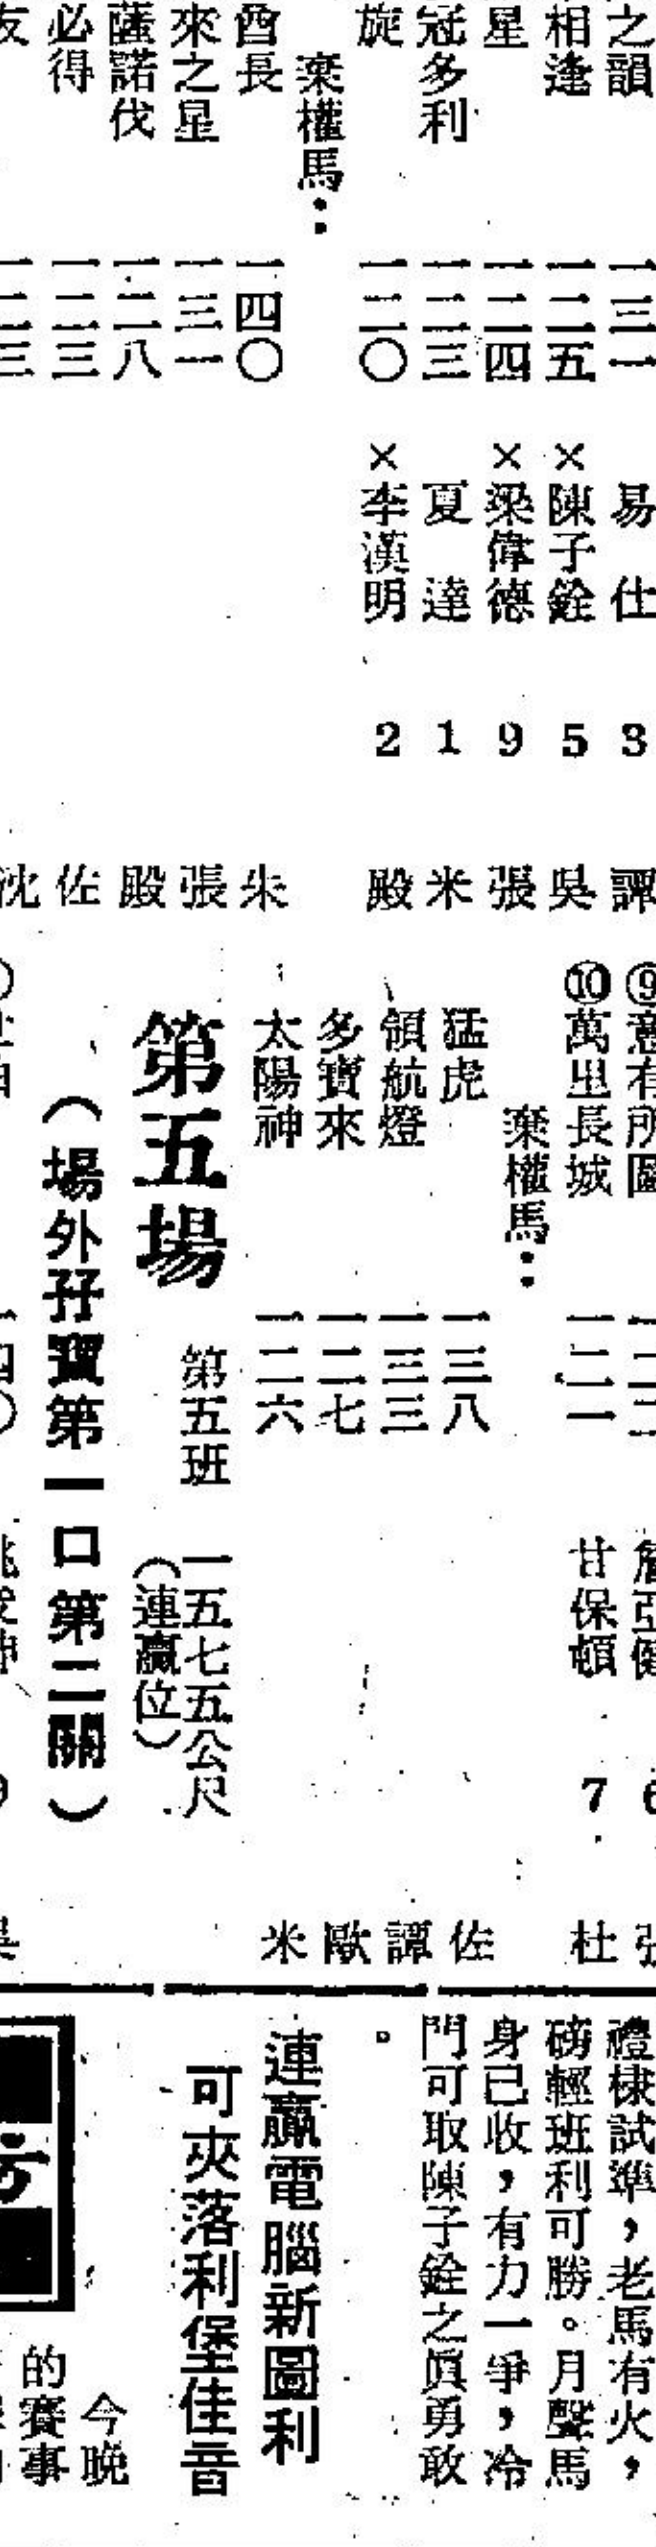 之韻 一三一 易仕 3 譚
相逢 一二五 ×陳子銓 5 吳
星 一二四 ×梁偉德 9 張
冠多利 一二三 夏達 1 米
旋 一二〇 ×李漢明 2 殿
棄權馬：
酋長 一四〇 朱
來之星 一三一 張
薩諾伐 一二八 殿
必得 一二三 佐
友 一二三 沈
⑨意有所圖
⑩萬里長城 一二一 甘保頓 7 杜
棄權馬：
猛虎 一三八 佐
領航燈 一三三 譚
多寶來 一二七 歐
太陽神 一二六 米
第五場 第五班 一五七五公尺
（連贏位）
（場外孖寶第一口第二關）
禮棣試準，老馬有火，
磅輕班利可勝。月聲馬
身已收，有力一爭，冷
門可取陳子銓之眞勇敢
。
連贏電腦新圖利
可夾落利堡佳音
今晚
的賽事